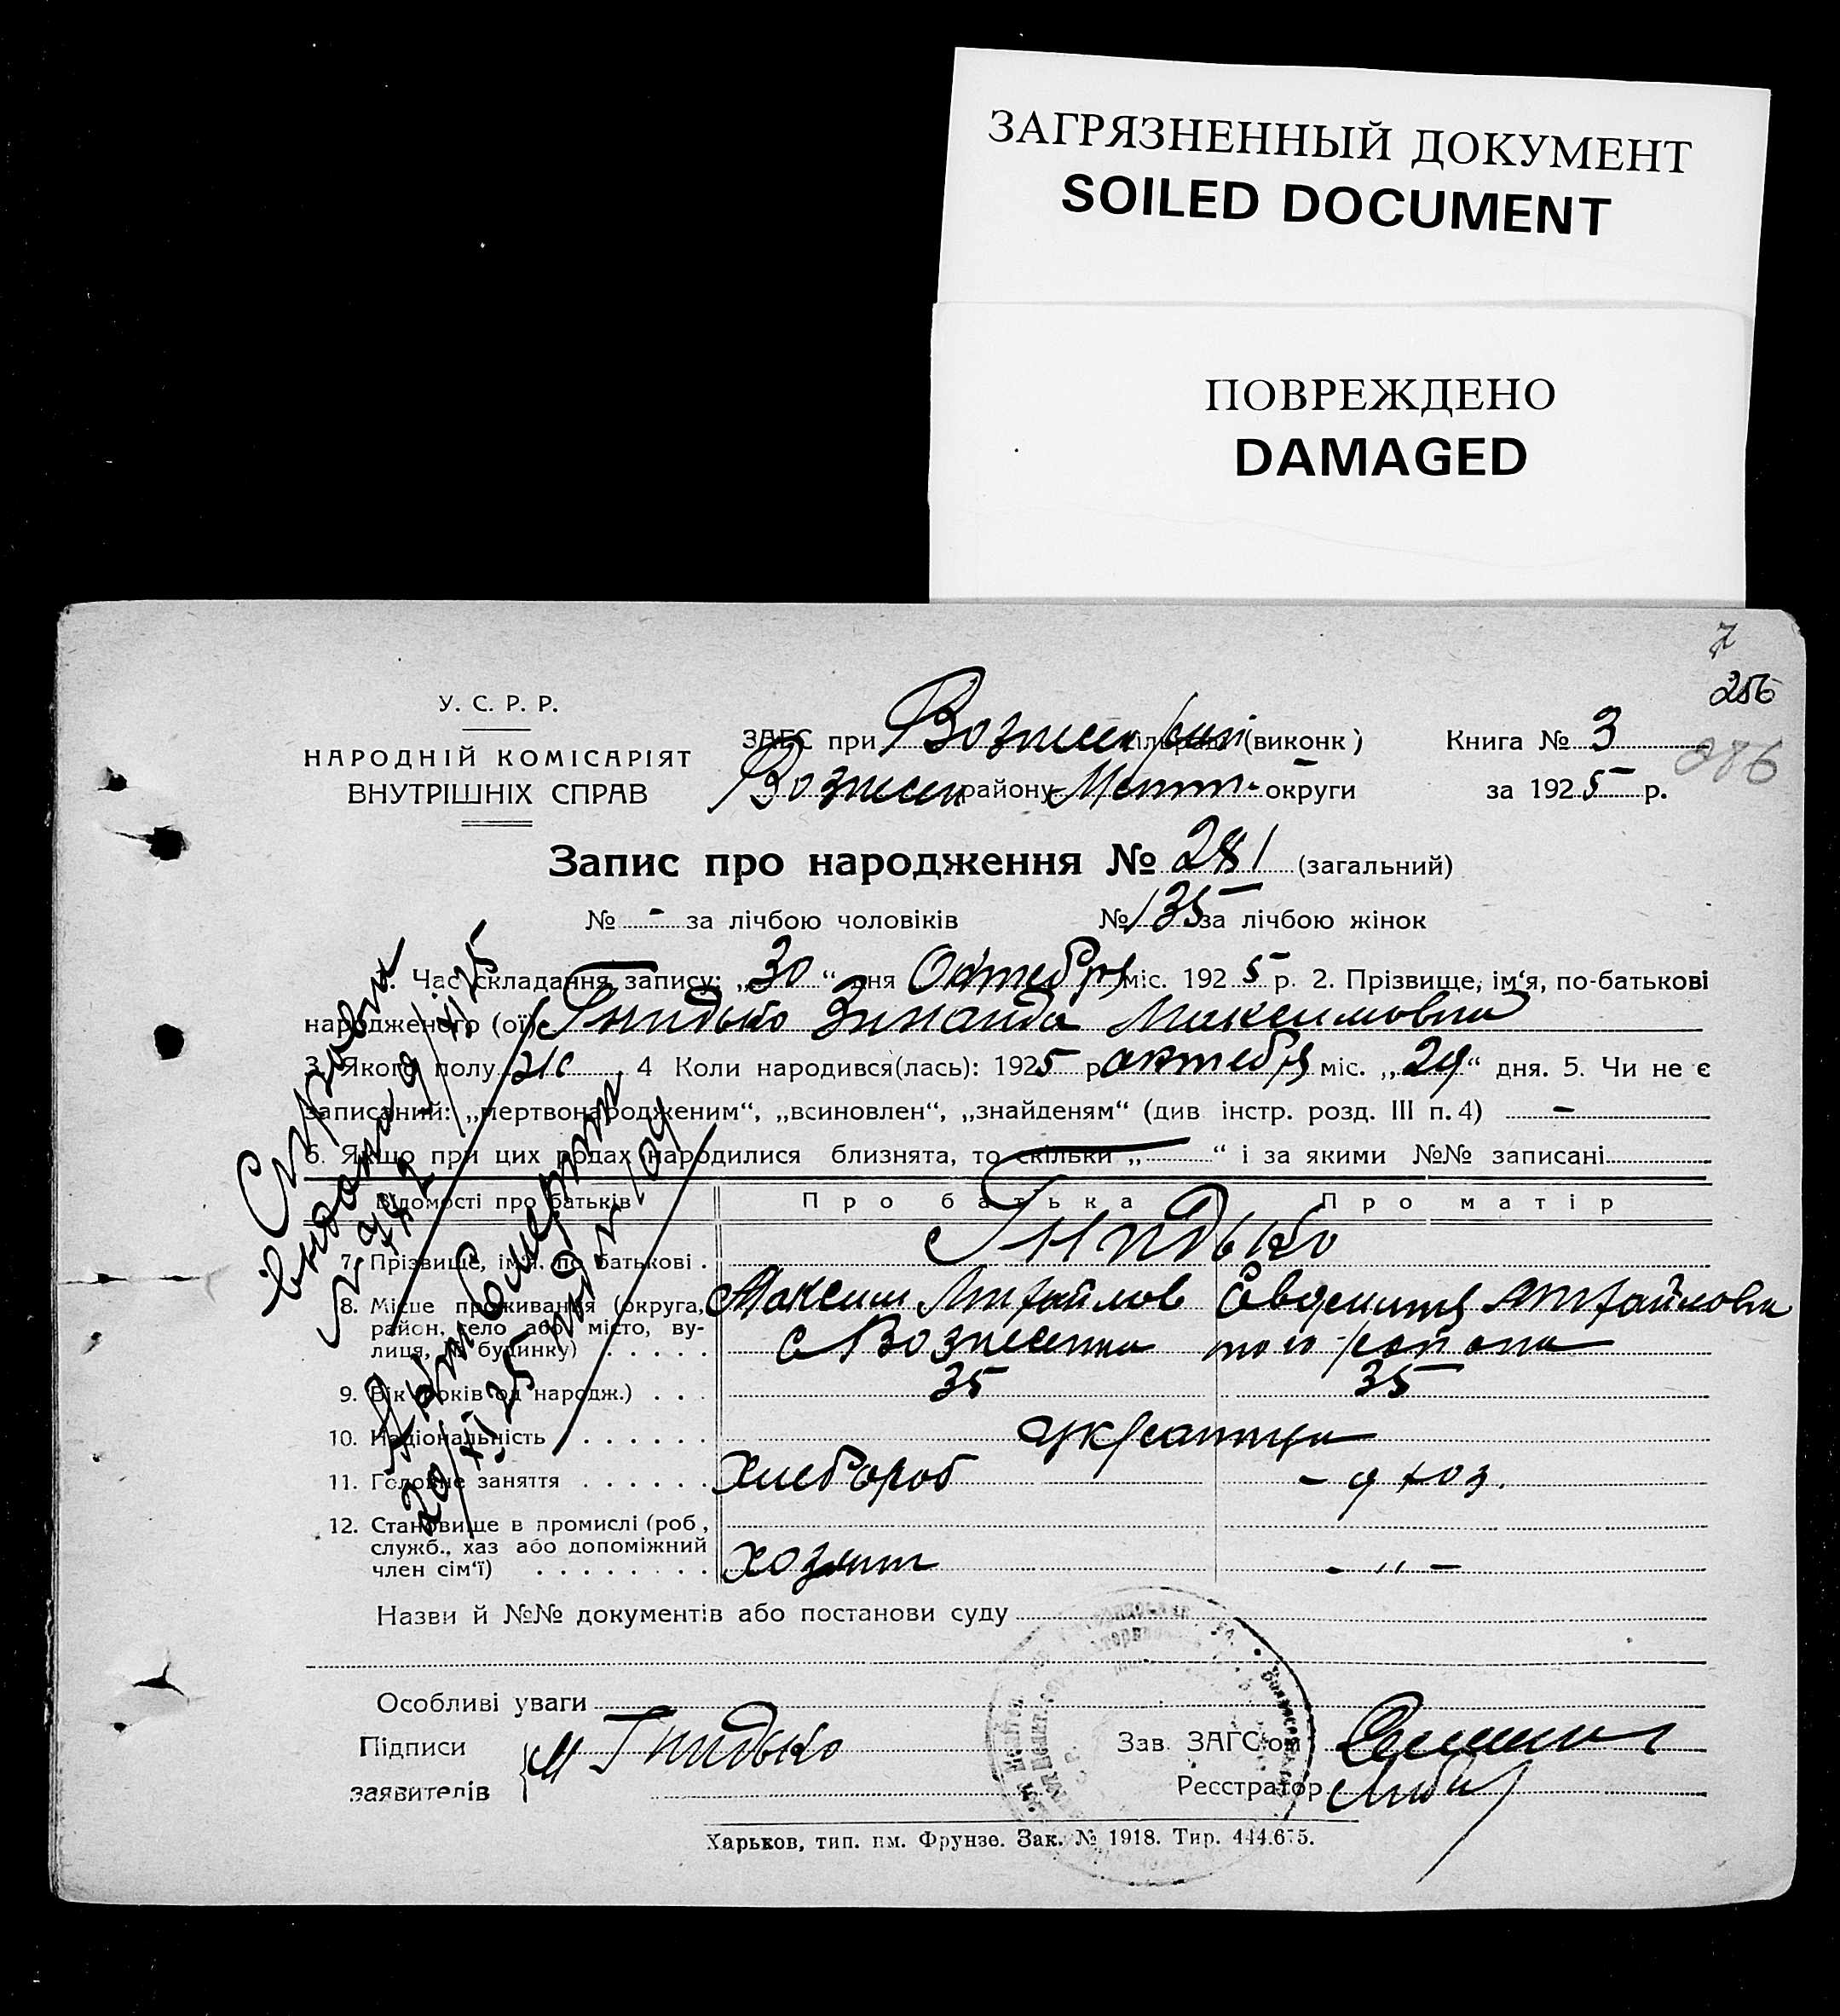 ЗАГРЯЗНЕННЫЙ ДОКУМЕНТ
SOILED DOCUMENT
ПОВРЕЖДЕНО
DAMAGED
7
256
286
У. С. Р. Р.
НАРОДНІЙ КОМІСАРІЯТ
ВНУТРІШНІХ СПРАВ
ЗАГС при (виконк)
Книга № 3
Вознесен району Меліт. округи
за 1925 р.
Запис про народження № 281 (загальний)
№ - за лічбою чоловіків № 135 за лічбою жінок
1. Час складання запису: „30“ дня Октебря міс. 1925 р. 2. Прізвище, ім‘я, по-батькові
народженого (ої) Гнидько Зинаида Максимовна
3. Якого полу жс 4 Коли народився(лась): 1925 р октебря міс. „29“ дня. 5. Чи не є
записаний: „мертвонародженим“, „всиновлен“, „знайденям“ (див інстр. розд. III п. 4) -
6. Якщо при цих родах народилися близнята, то скільки „ “ і за якими №№ записані
Відомості про батьків Про батька Про матір
7. Прізвище, ім‘я, по батькові . Гнидько
Максим Михайлов Евдокития Михайловна
8. Місце проживання (округа, район, село або місто, вулиця, № будинку) с Вознесенка
9. Вік (років од народж.) . . . 35 35
10. Національність . . . . . . украинцы
11. Головне заняття . . . . . . Хлебороб - д хоз.
12. Становище в промислі (роб, служб., хаз або допоміжний член сім‘ї) . . . . . . . . хозяин - „ -
Назви й №№ документів або постанови суду
Особливі уваги
Підписи
заявителів
М Гнидько
Зав ЗАГС‘ом
Реєстратор
Харьков, тип. им. Фрунзе. Зак. № 1918. Тир. 444.675.
Справка
видона 9/XI 25
Акт Смерти
20/XI 25